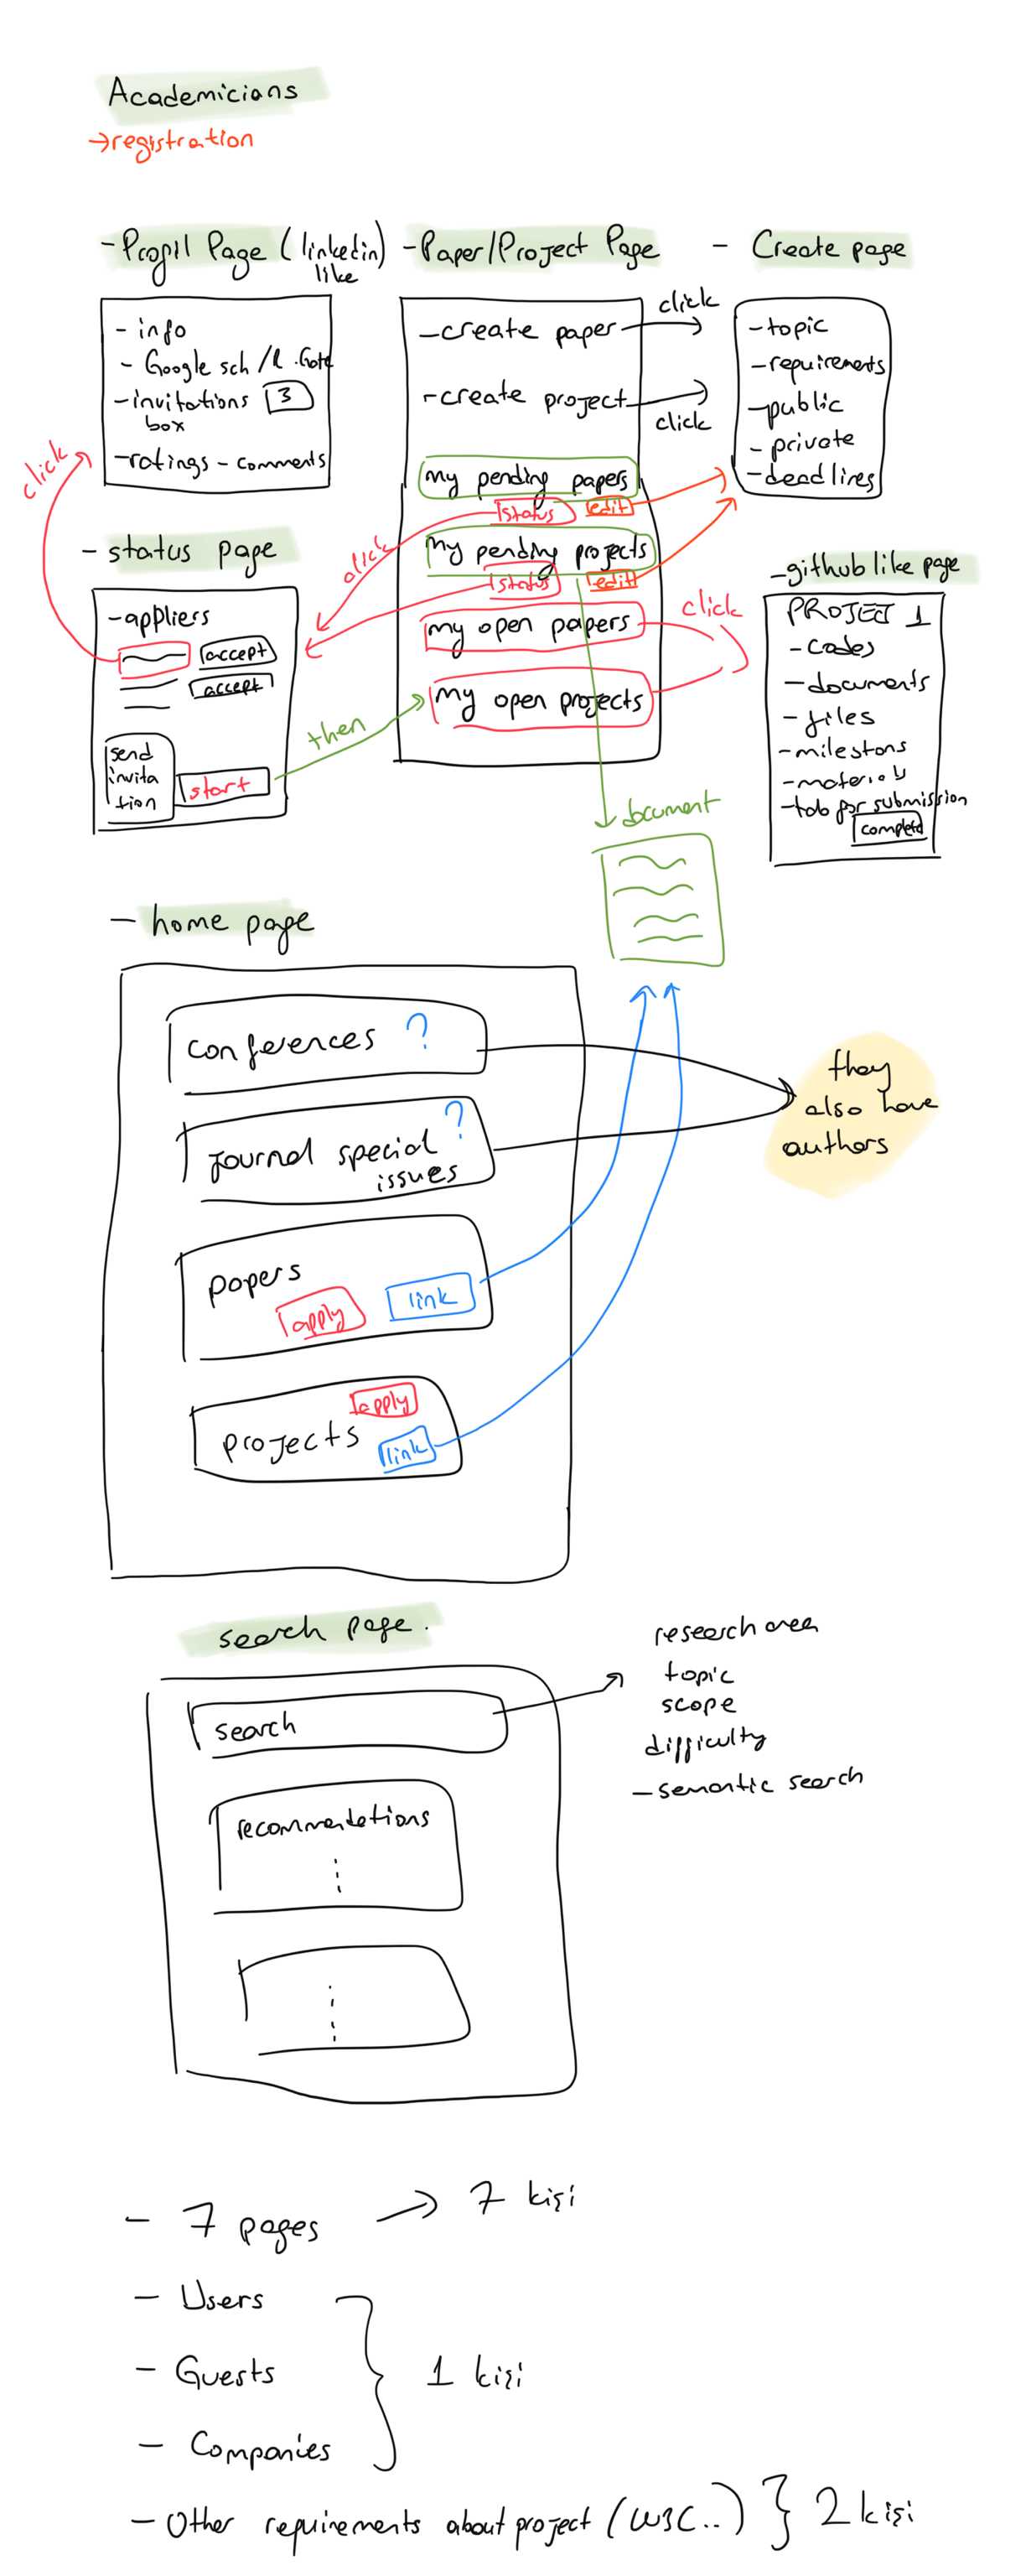 Academicians
→registration
- Profil Page (linkedin)
like
- info
- Google sch / R.Gate
-invitations 3
box
-ratings - comments
click
- Paper/Project Page
-create paper
click
-create project
click
my pending papers
status edit
My pending projects
status edit
my open papers
my open projects
click
click
- Create page
-topic
-requirements
-public
- private
-deadlines
- status page
-appliers
accept
accept
send
invita
tion
start
then
-github like page
PROJECT 1
- codes
- documents
- files
- milestons
- materials
-todo for submission
complete
document
- home page
conferences ?
Journal special ?
issues
papers
apply link
projects
apply
link
they
also have
authors
search page.
search
recommendetions
research area
topic
scope
difficulty
- semantic search
- 7 pages → 7 kişi
- Users
- Guests
- Companies
1 kişi
- Other requirements about project (W3C..) } 2 kişi